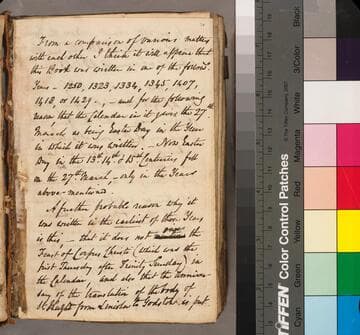 From a comparison of various matters
with each other I think it will appear that
this Book was written in one of the follow.g
Years - 1250, 1323, 1334, 1345, 1407,
1418, or 1429 - and for the following
reason that the Calendar in it gives the 27th
March as being Easter Day in the Year
in which it was written. - Now Easter
Day in the 13th 14th & 15th Centuries fell
on the 27th March - only in the Years
above-mentioned.
A further probable reason why it
was written in the earliest of those Years
is this, - that it does not the
Feast of Corpus Christi (which was the
first Thursday after Trinity Sunday) in
the Calendar and also that the
day of the Translation of the body of
St Hugh from Lincoln to is put
Black
3/Color
White
Magenta
Red
Yellow
Green
Cyan
TIFFEN Color Control Patches
© The Tiffen Company, 2007